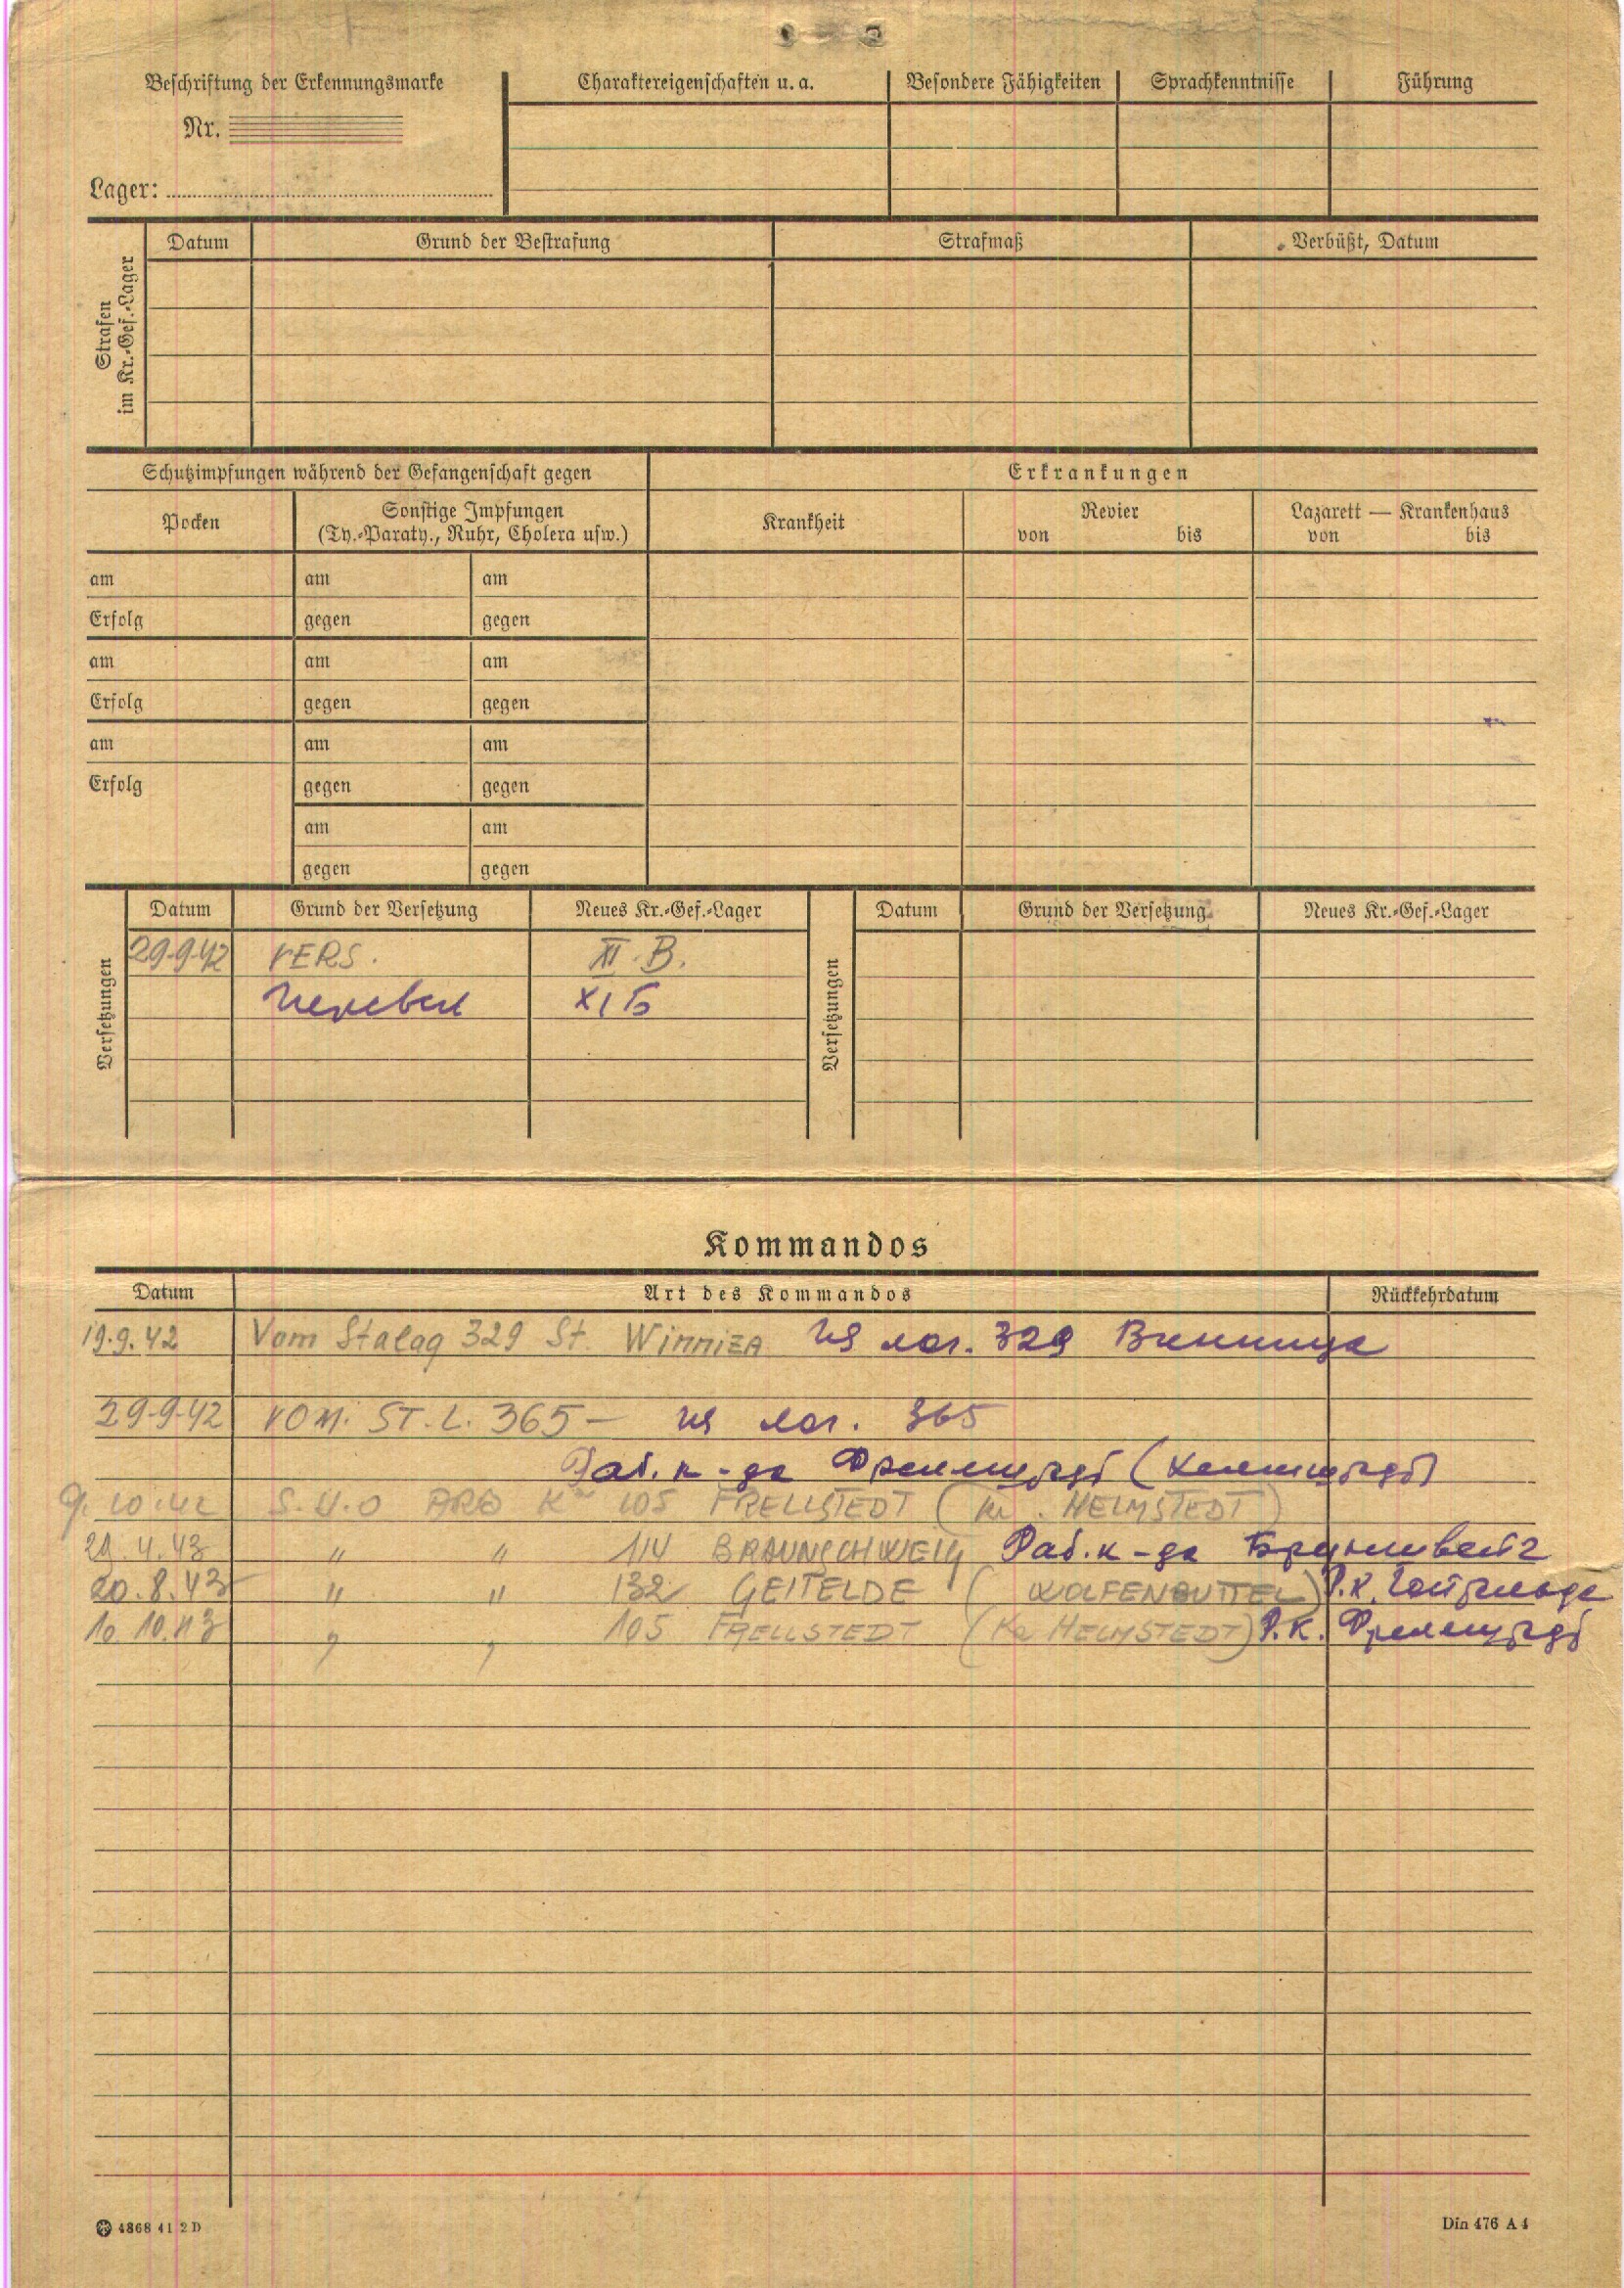 Beschriftung der Erkennungsmarke
Nr.
Lager:
Charaktereigenschaften u. a. Besondere Fähigkeiten Sprachkenntnisse Führung
Strafen im Kr.-Gef.-Lager
Datum Grund der Bestrafung Strafmaß Verbüßt, Datum
Schutzimpfungen während der Gefangenschaft gegen Erkrankungen
Pocken Sonstige Impfungen (Ty.-Paraty., Ruhr, Cholera usw.) Krankheit Revier von bis Lazarett — Krankenhaus von bis
am am am
Erfolg gegen gegen
am am am
Erfolg gegen gegen
am am am
Erfolg gegen gegen
am am
gegen gegen
Versetzungen
Datum Grund der Versetzung Neues Kr.-Gef.-Lager
29.9.42 VERS. XI. B.
перевед XI Б
Versetzungen
Datum Grund der Versetzung Neues Kr.-Gef.-Lager
Kommandos
Datum Art des Kommandos Rückkehrdatum
19.9.42 Vom Stalag 329 St. WinnizA из лаг. 329 Винница
29.9.42 VOM. ST. L. 365 – из лаг. 365
Раб. к-да Фрелштедт (Хелмштедт)
9.10.42 S.U.O ARB K 105 FRELLSTEDT (Kr. HELMSTEDT)
29.4.43 " " 114 BRAUNSCHWEIG Раб. к-да Брауншвейг
20.8.43 " " 132 GEITELDE (WOLFENBUTTEL) Р.К. Гайтельде
10.10.43 " " 105 FRELLSTEDT (Kr HELMSTEDT) Р.К. Фрелштедт
4868 41 2 D
Din 476 A 4